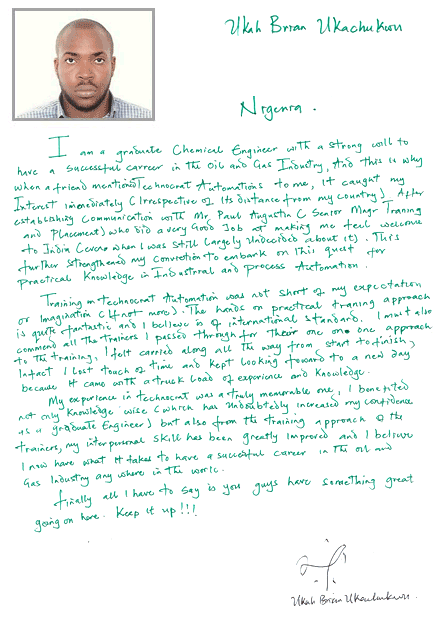 Ukah Brian Ukachukwu
Nigeria.
I am a graduate Chemical Engineer with a strong will to
have a successful carreer in the Oil and Gas Industry, And this is why
when a friend mentioned Technocrat Automations to me, it caught my
Interest immediately (Irrespective of Its distance from my country). After
establishing Communication with Mr. Paul Augustin (Senior Mngr Traning
and Placement) who did a very Good Job at making me feel welcome
to India (even when I was still largely Undecided about it). This
further strengthened my Conviction to embark on this quest for
practical Knowledge in Industrial and process Automation.
Training in technocrat Automation was not short of my expectation
or Imagination (if not more). The hands on practical traning approach
is quite fantastic and I believe is of international standard. I must also
commend all the trainers I passed through for their one on one approach
to the training, I felt carried along all the way from start to finish,
Infact I lost touch of time and kept looking forward to a new day
because it came with a truck load of experience and Knowledge.
My experience in technocrat was a truly memorable one, I benefited
not only Knowledge wise (which has Undoubtedly increased my confidence
as a graduate Engineer) but also from the training approach of the
trainers, my interpersonal skill has been greatly improved and I believe
I now have what it takes to have a successful career in the oil and
Gas Industry any where in the world.
finally all I have to say is you guys have something great
going on here. Keep it up!!!
Ukah Brian Ukachukwu.